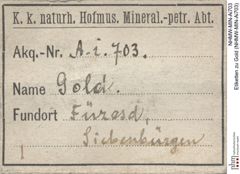 K. k. naturh. Hofmus. Mineral.-petr. Abt.
Akq.-Nr. A.i.703.
Name Gold.
Fundort Füzesd,
Siebenbürgen
NHMW-MIN-A703
Etiketten zu Gold (NHMW-MIN-A703)
nhm